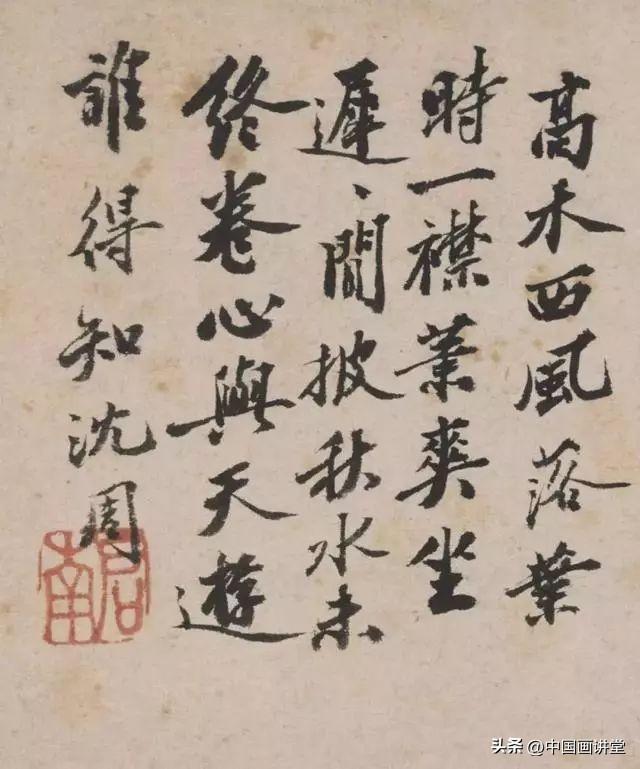 高木西風落葉
時一襟蕭爽坐
遲、閒披秋水未
終卷心與天遊
誰得知沈周
啟南
头条 @中国画讲堂